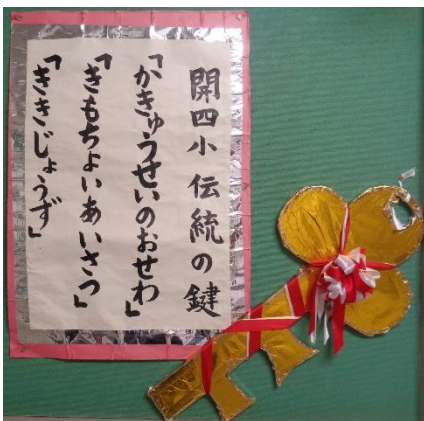 開四小 伝統の鍵
「かきゅうせいのおせわ」
「きもちよいあいさつ」
「ききじょうず」